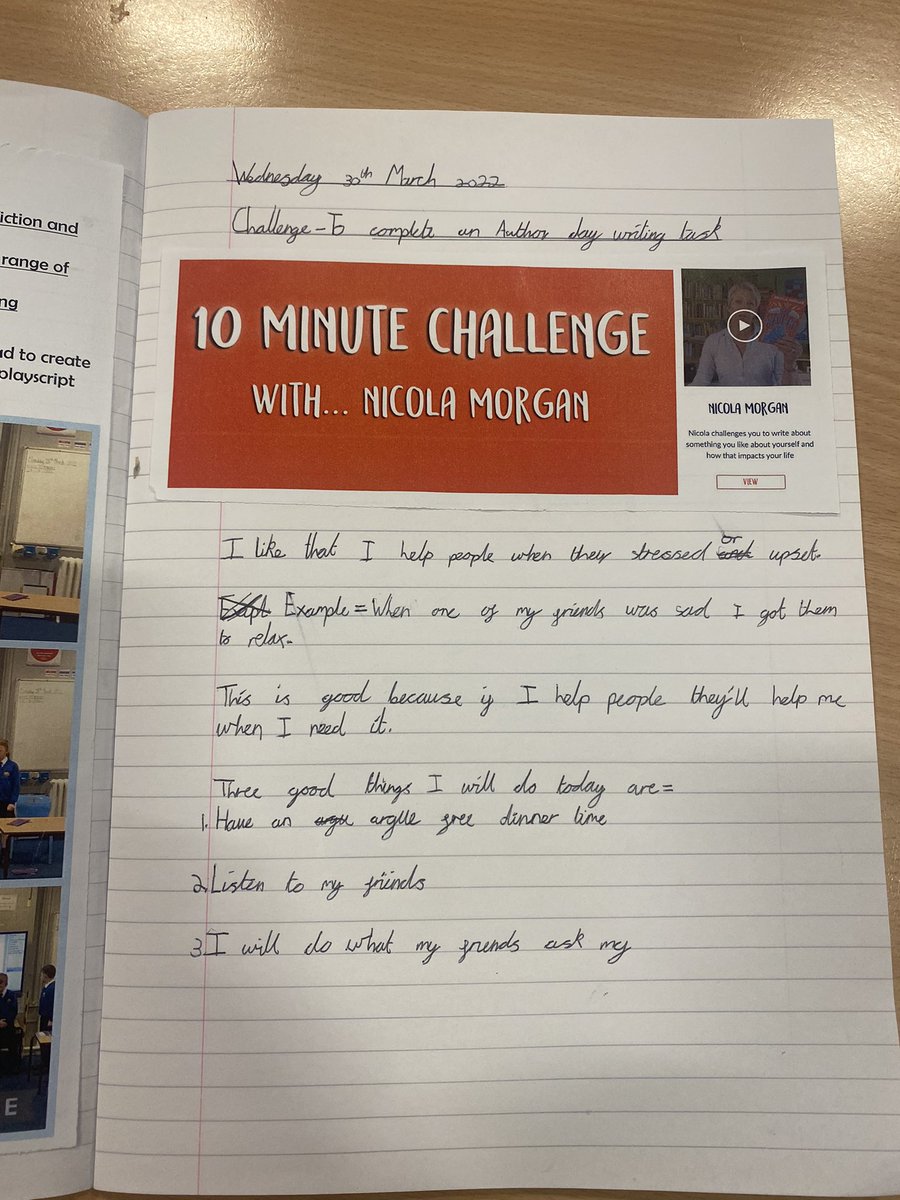 iction and
range of
ng
ad to create
playscript
E
Wednesday 30th March 2022
Challenge - To complete an Author day writing task
10 MINUTE CHALLENGE
WITH... NICOLA MORGAN
NICOLA MORGAN
Nicola challenges you to write about
something you like about yourself and
how that impacts your life
VIEW
I like that I help people when their stressed or upset.
Example = When one of my friends was sad I got them
to relax.
This is good because if I help people they'll help me
when I need it.
Three good things I will do today are=
1. Have an argue free dinner time
2. Listen to my friends
3. I will do what my friends ask my